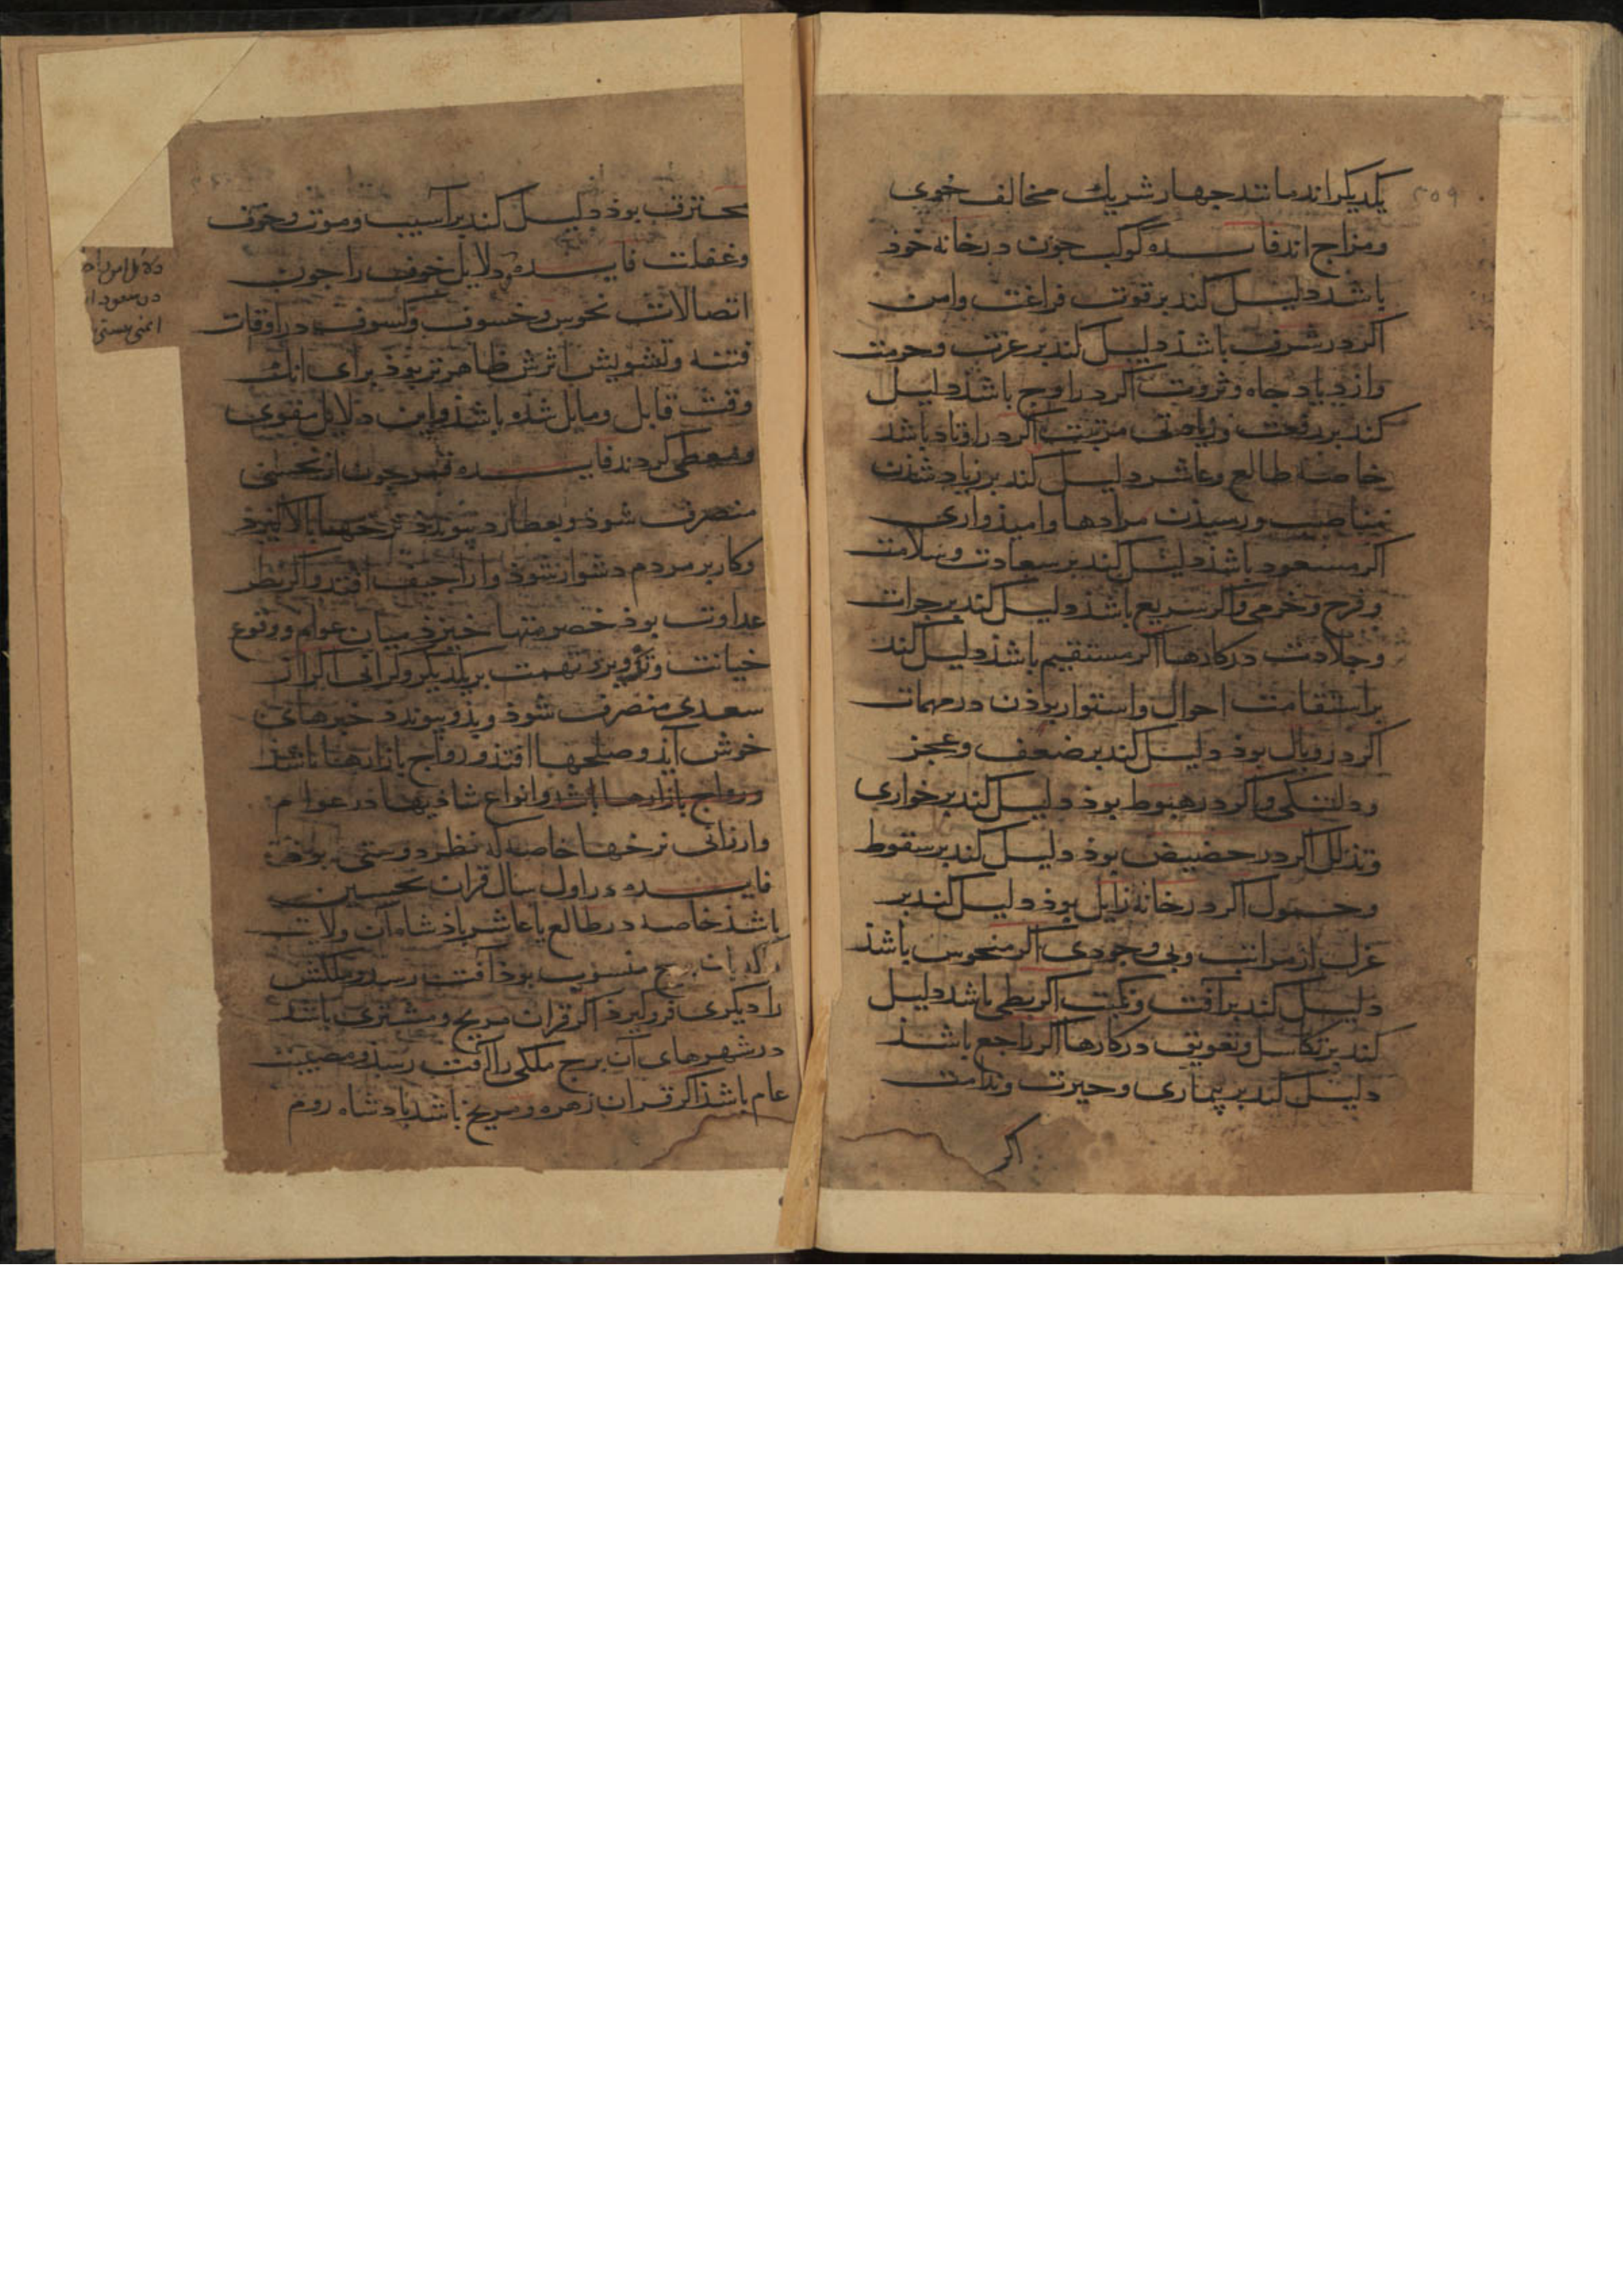 یکدیکراند مانند جهار شریك مخالف خوی
ومزاج اند فایده کوکب جون در خانه خوذ
باشد دلیل کند بر قوت فراغت وامن
اکر در شرف باشذ دلیل کند بر عزت وحرمت
وازدیاد جاه وثروت اکر در اوج باشذ دلیل
کند بر رفعت وریاضتی مرتبت اکر در اوتاد باشد
خاصه طالع وعاشر دلیل کند بر زیاد شذن
مناصب ورسیذن مرادها وامیذواری
اکر مسعود باشذ دلیل کند بر سعادت وسلامت
وفرح وخرمی واکر سریع باشذ دلیل کند بر جرات
وجلادت در کارها اکر مستقیم باشذ دلیل کند
بر استقامت احوال واستوار بوذن در مهمات
اکر در وبال بوذ دلیل کند بر ضعف وعجز
ودلتنکی واکر در هبوط بوذ دلیل کند بر خواری
وتذلل اکر در حضیض بوذ دلیل کند بر سقوط
وخمول اکر در خانه زایل بوذ دلیل کند بر
عزل از مراتب وبی وجودی اکر منحوس باشذ
دلیل کند بر آفت ونکبت اکر بطی باشد دلیل
کند بر تکاسل وتعویق در کارها اکر راجع باشذ
دلیل کند بر بیماری وحیرت وندامت
اکر
۲۵۹
محترق بوذ دلیل کند بر آسیب وموت وخوف
وغفلت فایده دلایل خوف را جون
اتصالات نحوس وخسوف وکسوف در اوقات
فتنه وتشویش اثرش ظاهرتر بوذ برای انك
وقت قابل ومایل شده باشذ واین دلایل مقوی
ومعطی کردند فایده قمر جون از نحسی
منصرف شوذ وبعطارد پیوندد نرخها بالا کیرذ
وکار بر مردم دشوار شوذ واراجیف افتد واکر بنظر
عداوت بوذ خصومتها خیزذ میان عوام ووقوع
خیانت وتزویر وتهمت بر یکدیکر وکرانی اکر از
سعدی منصرف شوذ وبذو پیوندد خبرهای
خوش آید وصلحها افتذ ورواج بازارها باشذ
ورواج بازارها باشد وانواع شادیها در عوام
وارزانی نرخها خاصه که نظر دوستی بوذ
فایده در اول سال قران نحسین
باشذ خاصه در طالع یا عاشر پادشاه آن ولایت
را که بان برج منسوب بوذ آفت رسد ومملکتش
را دیکری فروکیرذ اکر قران مریخ ومشتری باشد
در شهرهای آن برج ملکی را آفت رسذ ومصیبت
عام باشذ اکر قران زهره ومریخ باشد پادشاه روم
دلایل امن
در سعود